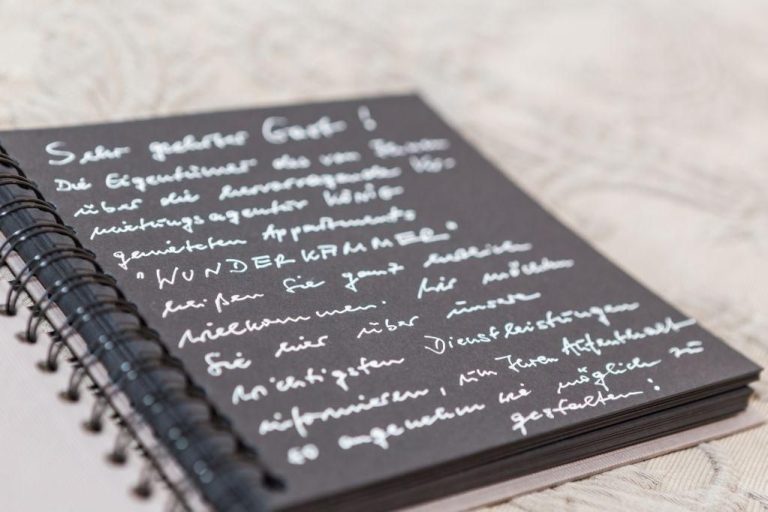 Sehr geehrter Gast!
Die Eigentümer des von Ihnen
über die hervorragende Ver-
mietungsagentur König
gemieteten Appartments
"WUNDERKAMMER"
heißen Sie ganz
willkommen! Wir möchten
Sie hier über unsere
wichtigsten Dienstleistungen
informieren, um Ihren Aufenthalt
so angenehm wie möglich zu
gestalten!